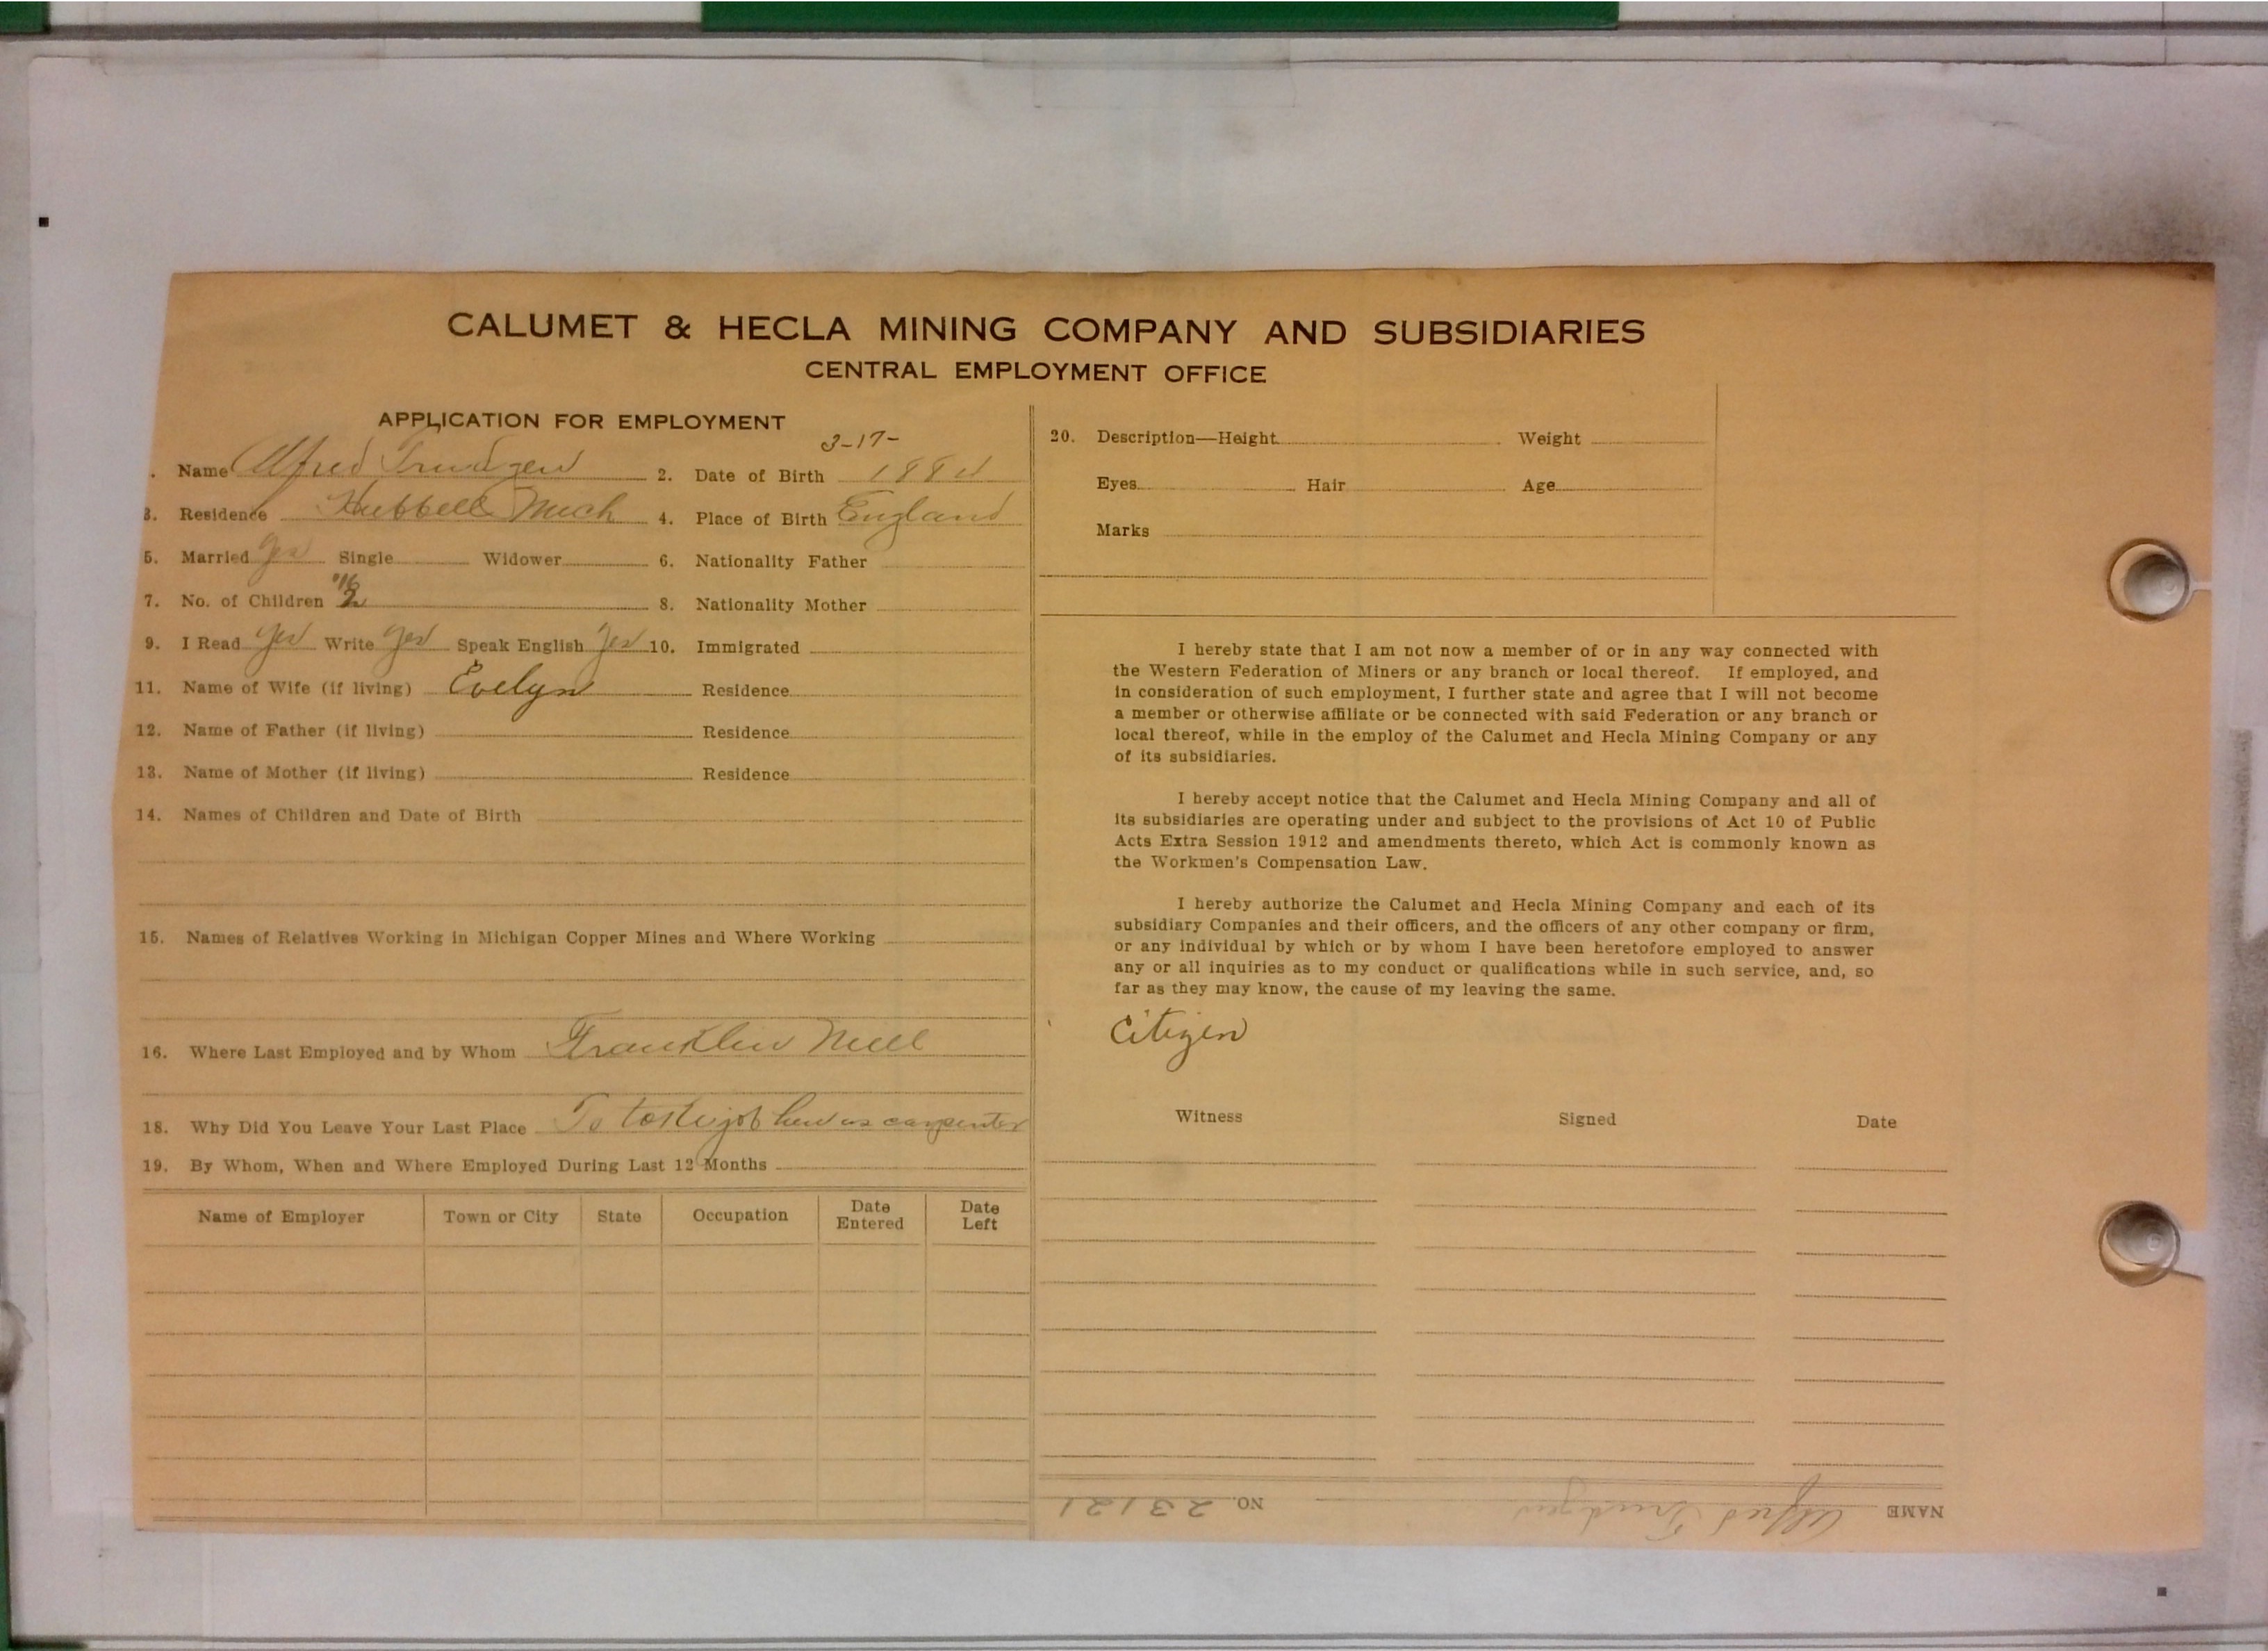 CALUMET & HECLA MINING COMPANY AND SUBSIDIARIES
CENTRAL EMPLOYMENT OFFICE
APPLICATION FOR EMPLOYMENT
3-17-
. Name Alfred Trudgen 2. Date of Birth 1884
3. Residence Hubbell Mich 4. Place of Birth England
5. Married yes Single Widower 6. Nationality Father
'16
7. No. of Children 2 8. Nationality Mother
9. I Read yes Write yes Speak English yes 10. Immigrated
11. Name of Wife (if living) Evelyn Residence
12. Name of Father (if living) Residence
13. Name of Mother (if living) Residence
14. Names of Children and Date of Birth
15. Names of Relatives Working in Michigan Copper Mines and Where Working
16. Where Last Employed and by Whom Franklin Mill
18. Why Did You Leave Your Last Place To take job here as carpenter
19. By Whom, When and Where Employed During Last 12 Months
Name of Employer Town or City State Occupation Date Entered Date Left
20. Description—Height Weight
Eyes Hair Age
Marks
I hereby state that I am not now a member of or in any way connected with
the Western Federation of Miners or any branch or local thereof. If employed, and
in consideration of such employment, I further state and agree that I will not become
a member or otherwise affiliate or be connected with said Federation or any branch or
local thereof, while in the employ of the Calumet and Hecla Mining Company or any
of its subsidiaries.
I hereby accept notice that the Calumet and Hecla Mining Company and all of
its subsidiaries are operating under and subject to the provisions of Act 10 of Public
Acts Extra Session 1912 and amendments thereto, which Act is commonly known as
the Workmen's Compensation Law.
I hereby authorize the Calumet and Hecla Mining Company and each of its
subsidiary Companies and their officers, and the officers of any other company or firm,
or any individual by which or by whom I have been heretofore employed to answer
any or all inquiries as to my conduct or qualifications while in such service, and, so
far as they may know, the cause of my leaving the same.
Citizen
Witness Signed Date
NAME Alfred Trudgen NO. 23121